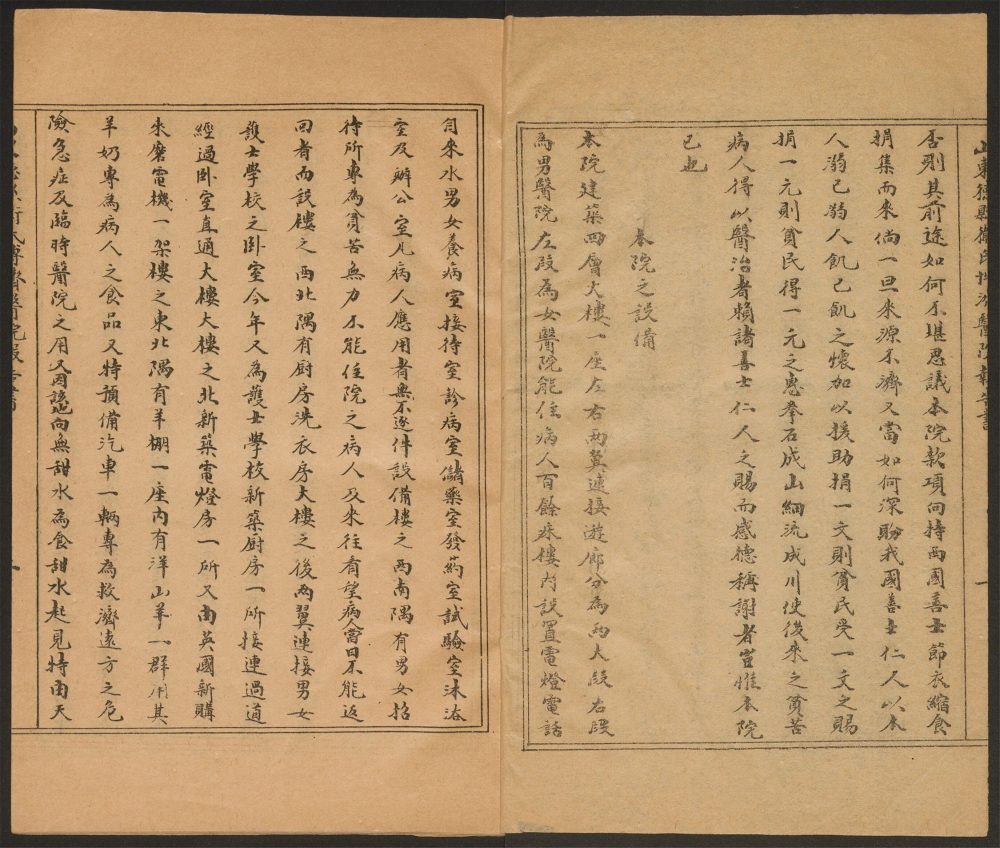 否則其前途如何不堪思議本院款項向持西國善士節衣縮食
捐集而來倘一旦來源不濟又當如何深盼我國善士仁人以本
人溺己溺人飢己飢之懷加以援助捐一文則貧民受一文之賜
捐一元則貧民得一元之惠拳石成山細流成川使後來之貧苦
病人得以醫治者賴諸善士仁人之賜而感德稱謝者豈惟本院
已也
本院之設備
本院建築兩層大樓一座左右兩翼連接遊廊分為兩大段右段
為男醫院左段為女醫院能住病人百餘床樓內設置電燈電話
自來水男女養病室接待室診病室儲藥室發药室試驗室沐浴
室及辦公室凡病人應用者無不逐件設備樓之西南隅有男女招
待所專為貧苦無力不能住院之病人及來往看望病人當日不能返
回者而設樓之西北隅有厨房洗衣房大樓之後两翼連接男女
護士學校之卧室今年又為護士學校新築厨房一所接連過道
經過卧室直通大樓大樓之北新築電燈房一所又由英國新購
來磨電機一架樓之東北隅有羊棚一座內有洋山羊一群用其
羊奶專為病人之食品又特預備汽車一輛專為救濟遠方之危
險急症及臨時醫院之用又因該地向無甜水為食甜水起見特由天